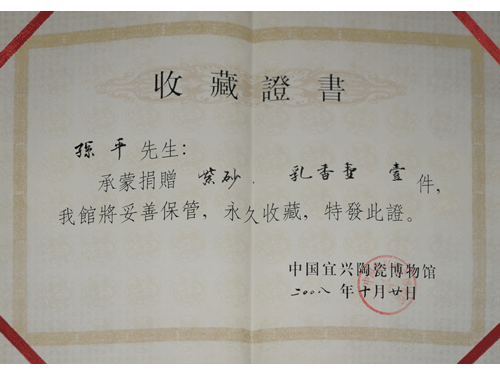 收藏證書
孫平先生：
承蒙捐贈紫砂．乳香壺 壹件，
我館將妥善保管，永久收藏，特發此證。
中国宜兴陶瓷博物馆
二〇〇八年十月廿日